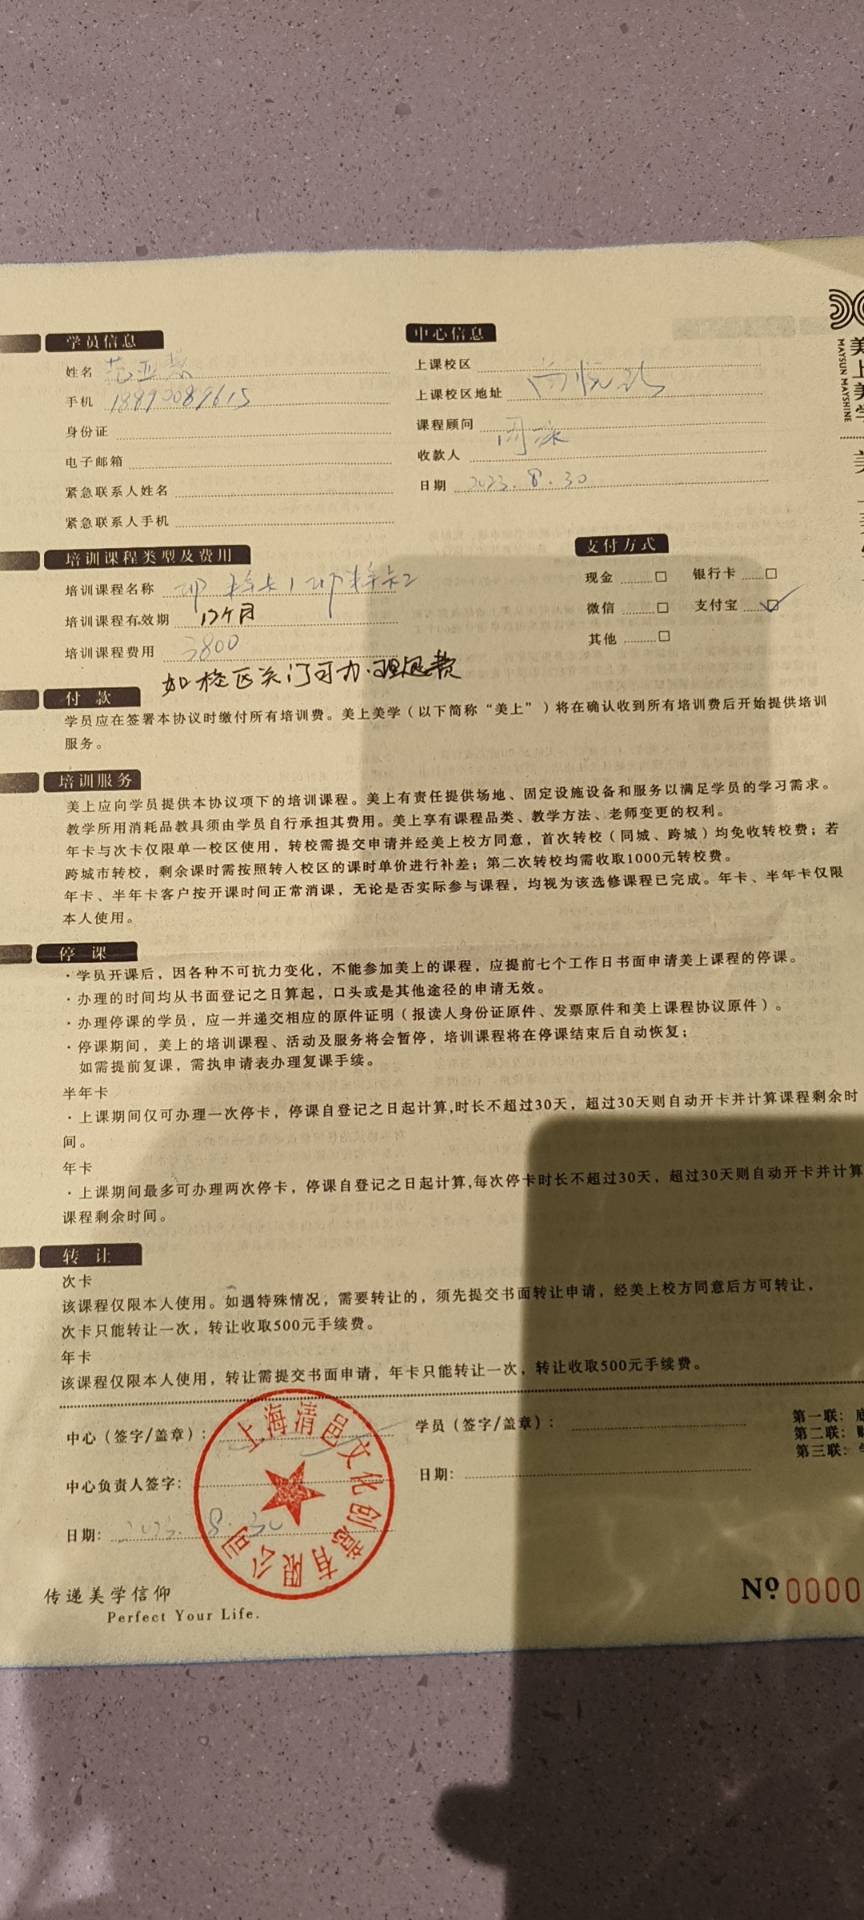 美上美学
MAYSUN MAYSHINE
学员信息
姓名
手机 18890089615
身份证
电子邮箱
紧急联系人姓名
紧急联系人手机
中心信息
上课校区
上课校区地址
课程顾问
收款人
日期 2023.8.30
培训课程类型及费用
培训课程名称
培训课程有效期 12个月
培训课程费用 3800
如校区关门可办理退费
支付方式
现金 银行卡
微信 支付宝
其他
付 款
学员应在签署本协议时缴付所有培训费。美上美学（以下简称“美上”）将在确认收到所有培训费后开始提供培训
服务。
培训服务
美上应向学员提供本协议项下的培训课程。美上有责任提供场地、固定设施设备和服务以满足学员的学习需求。
教学所用消耗品教具须由学员自行承担其费用。美上享有课程品类、教学方法、老师变更的权利。
年卡与次卡仅限单一校区使用，转校需提交申请并经美上校方同意，首次转校（同城、跨城）均免收转校费；若
跨城市转校，剩余课时需按照转入校区的课时单价进行补差；第二次转校均需收取1000元转校费。
年卡、半年卡客户按开课时间正常消课，无论是否实际参与课程，均视为该选修课程已完成。年卡、半年卡仅限
本人使用。
停 课
·学员开课后，因各种不可抗力变化，不能参加美上的课程，应提前七个工作日书面申请美上课程的停课。
·办理的时间均从书面登记之日算起，口头或是其他途径的申请无效。
·办理停课的学员，应一并递交相应的原件证明（报读人身份证原件、发票原件和美上课程协议原件）。
·停课期间，美上的培训课程、活动及服务将会暂停，培训课程将在停课结束后自动恢复；
如需提前复课，需执申请表办理复课手续。
半年卡
·上课期间仅可办理一次停卡，停课自登记之日起计算,时长不超过30天，超过30天则自动开卡并计算课程剩余时
间。
年卡
·上课期间最多可办理两次停卡，停课自登记之日起计算,每次停卡时长不超过30天，超过30天则自动开卡并计算
课程剩余时间。
转 让
次卡
该课程仅限本人使用。如遇特殊情况，需要转让的，须先提交书面转让申请，经美上校方同意后方可转让，
次卡只能转让一次，转让收取500元手续费。
年卡
该课程仅限本人使用，转让需提交书面申请，年卡只能转让一次，转让收取500元手续费。
中心（签字/盖章）：
学员（签字/盖章）：
中心负责人签字：
日期：
日期： 2023.8.30
上海清邑文化创意有限公司
第一联：
第二联：
第三联：
传递美学信仰
Perfect Your Life.
Nº 0000